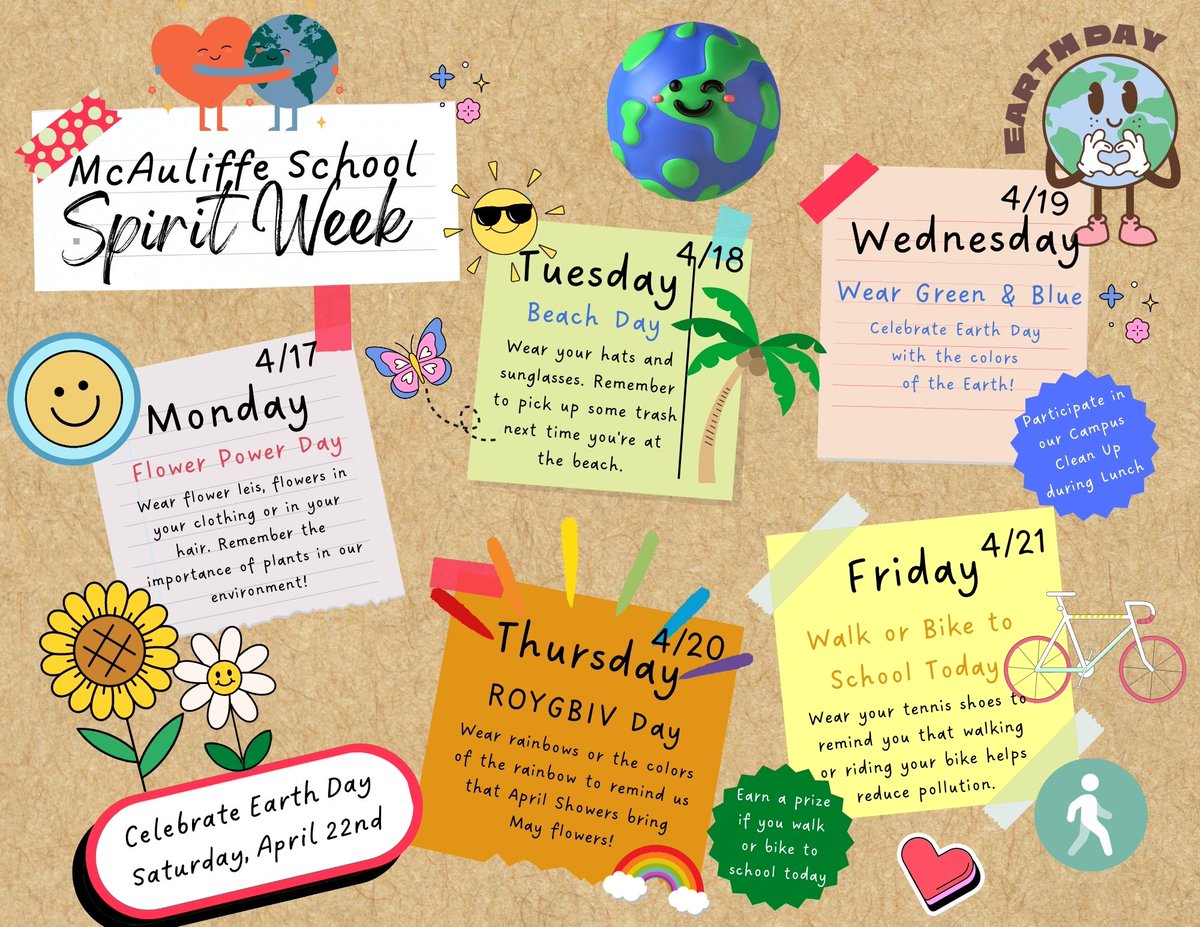 McAuliffe School
Spirit Week
EARTH DAY
4/17
Monday
Flower Power Day
Wear flower leis, flowers in
your clothing or in your
hair. Remember the
importance of plants in our
environment!
4/18
Tuesday
Beach Day
Wear your hats and
sunglasses. Remember
to pick up some trash
next time you're at
the beach.
4/19
Wednesday
Wear Green & Blue
Celebrate Earth Day
with the colors
of the Earth!
Participate in
our Campus
Clean Up
during Lunch
4/20
Thursday
ROYGBIV Day
Wear rainbows or the colors
of the rainbow to remind us
that April Showers bring
May flowers!
4/21
Friday
Walk or Bike to
School Today
Wear your tennis shoes to
remind you that walking
or riding your bike helps
reduce pollution.
Earn a prize
if you walk
or bike to
school today
Celebrate Earth Day
Saturday, April 22nd